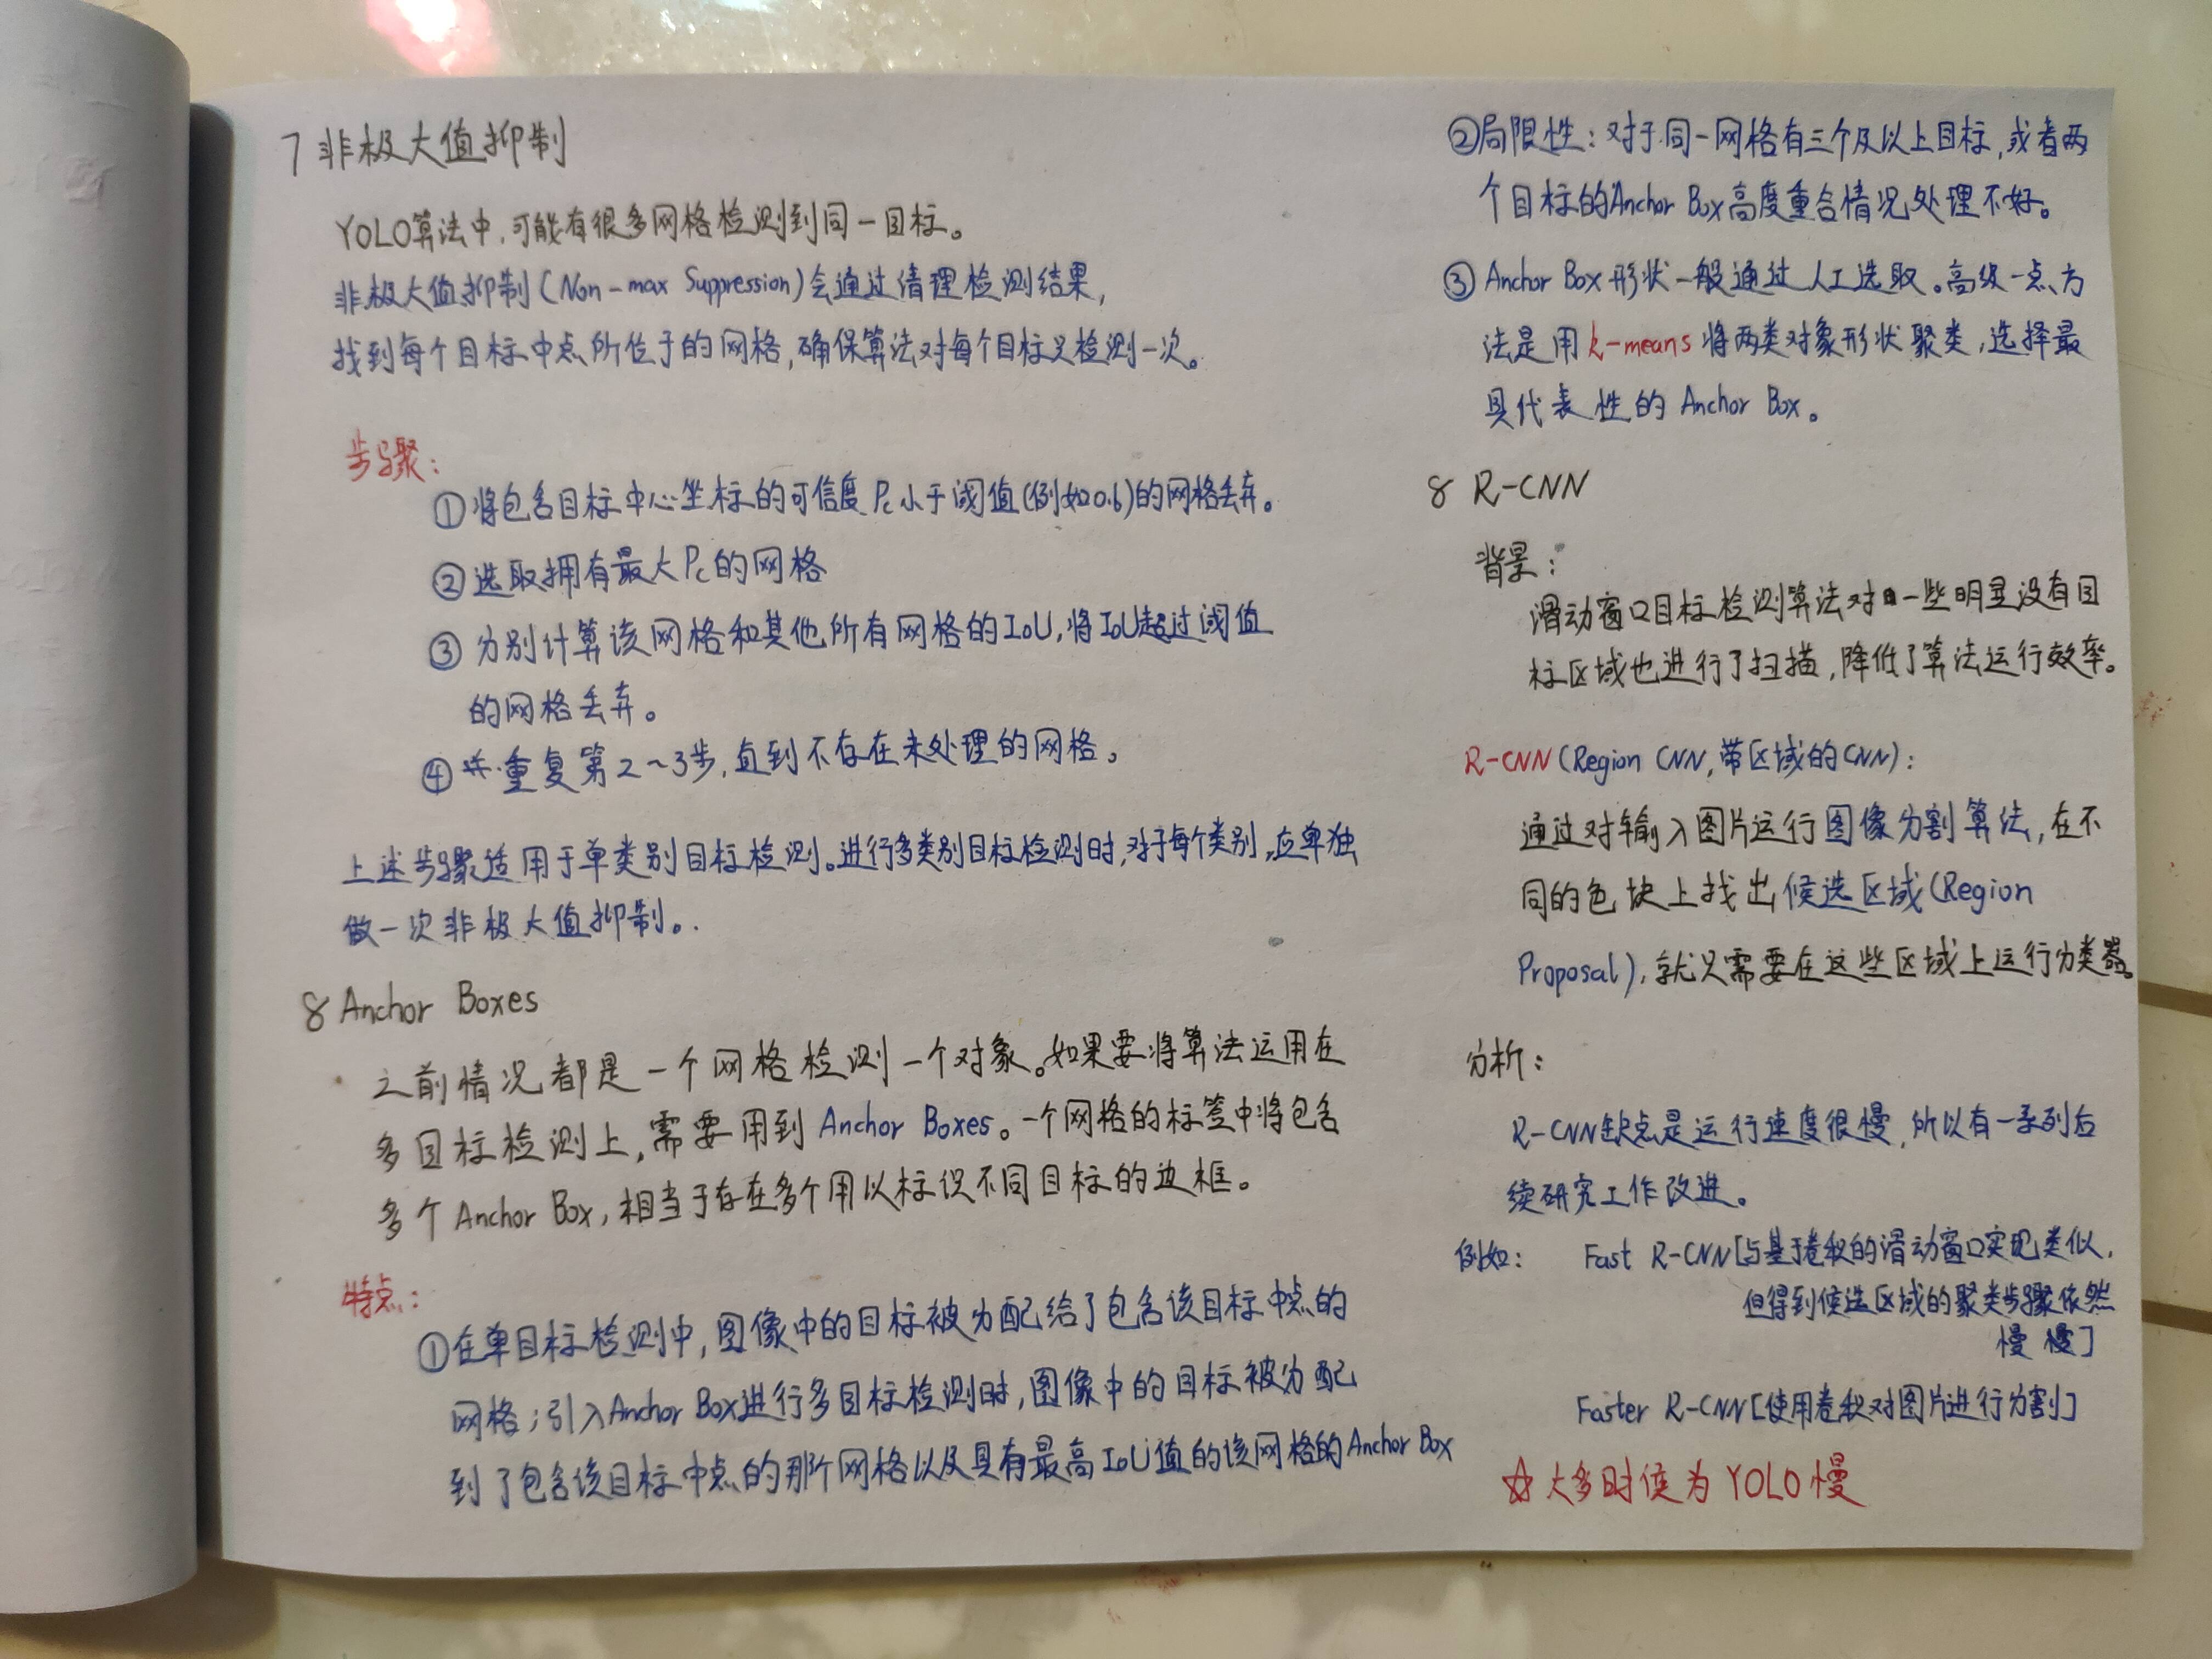 7 非极大值抑制
YOLO算法中,可能有很多网格检测到同一目标。
非极大值抑制(Non-max Suppression)会通过清理检测结果,
找到每个目标中点所位于的网格,确保算法对每个目标只检测一次。
步骤:
①将包含目标中心坐标的可信度Pc小于阈值(例如0.6)的网格丢弃。
②选取拥有最大Pc的网格
③分别计算该网格和其他所有网格的IoU,将IoU超过阈值
的网格丢弃。
④重复第2~3步,直到不存在未处理的网格。
上述步骤适用于单类别目标检测。进行多类别目标检测时,对于每个类别,应单独
做一次非极大值抑制。
8 Anchor Boxes
之前情况都是一个网格检测一个对象。如果要将算法运用在
多目标检测上,需要用到Anchor Boxes。一个网格的标签中将包含
多个Anchor Box,相当于存在多个用以标识不同目标的边框。
特点:
①在单目标检测中,图像中的目标被分配给了包含该目标中点的
网格;引入Anchor Box进行多目标检测时,图像中的目标被分配
到了包含该目标中点的那个网格以及具有最高IoU值的该网格的Anchor Box
②局限性:对于同一网格有三个及以上目标,或者两
个目标的Anchor Box高度重合情况处理不好。
③Anchor Box形状一般通过人工选取。高级一点方
法是用k-means将两类对象形状聚类,选择最
具代表性的Anchor Box。
8 R-CNN
背景:
滑动窗口目标检测算法对一些明显没有目
标区域也进行了扫描,降低了算法运行效率。
R-CNN(Region CNN,带区域的CNN):
通过对输入图片运行图像分割算法,在不
同的色块上找出候选区域(Region
Proposal),就只需要在这些区域上运行分类器。
分析:
R-CNN缺点是运行速度很慢,所以有一系列后
续研究工作改进。
例如: Fast R-CNN[与基于卷积的滑动窗口实现类似,
但得到候选区域的聚类步骤依然
慢 慢]
Faster R-CNN[使用卷积对图片进行分割]
☆大多时候为YOLO慢